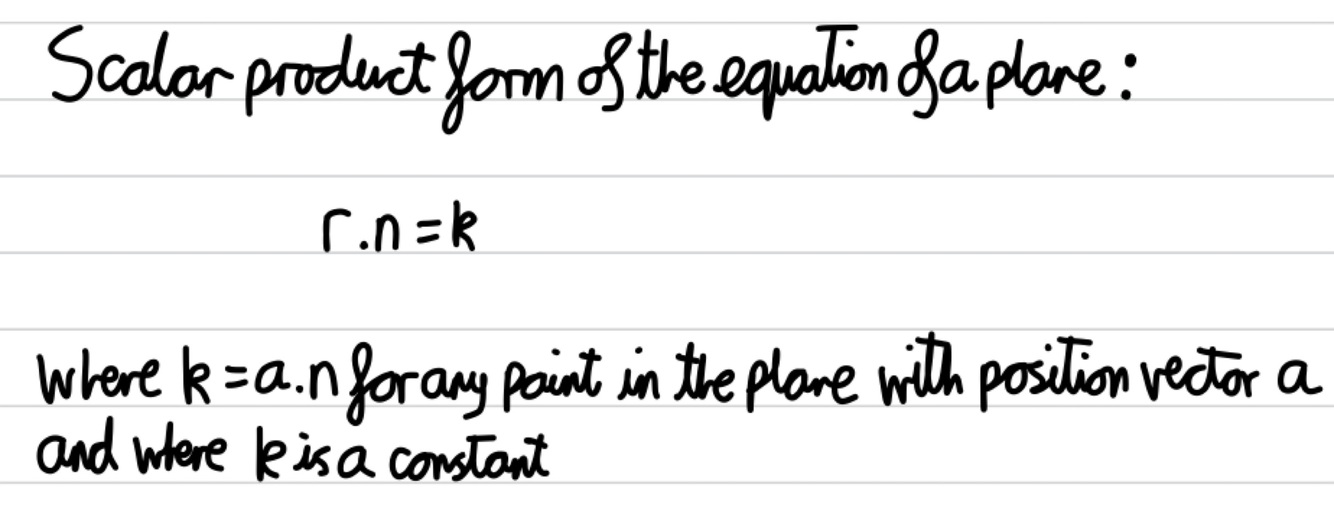 Scalar product form of the equation of a plane:
r.n = k
where k = a.n for any point in the plane with position vector a
and where k is a constant